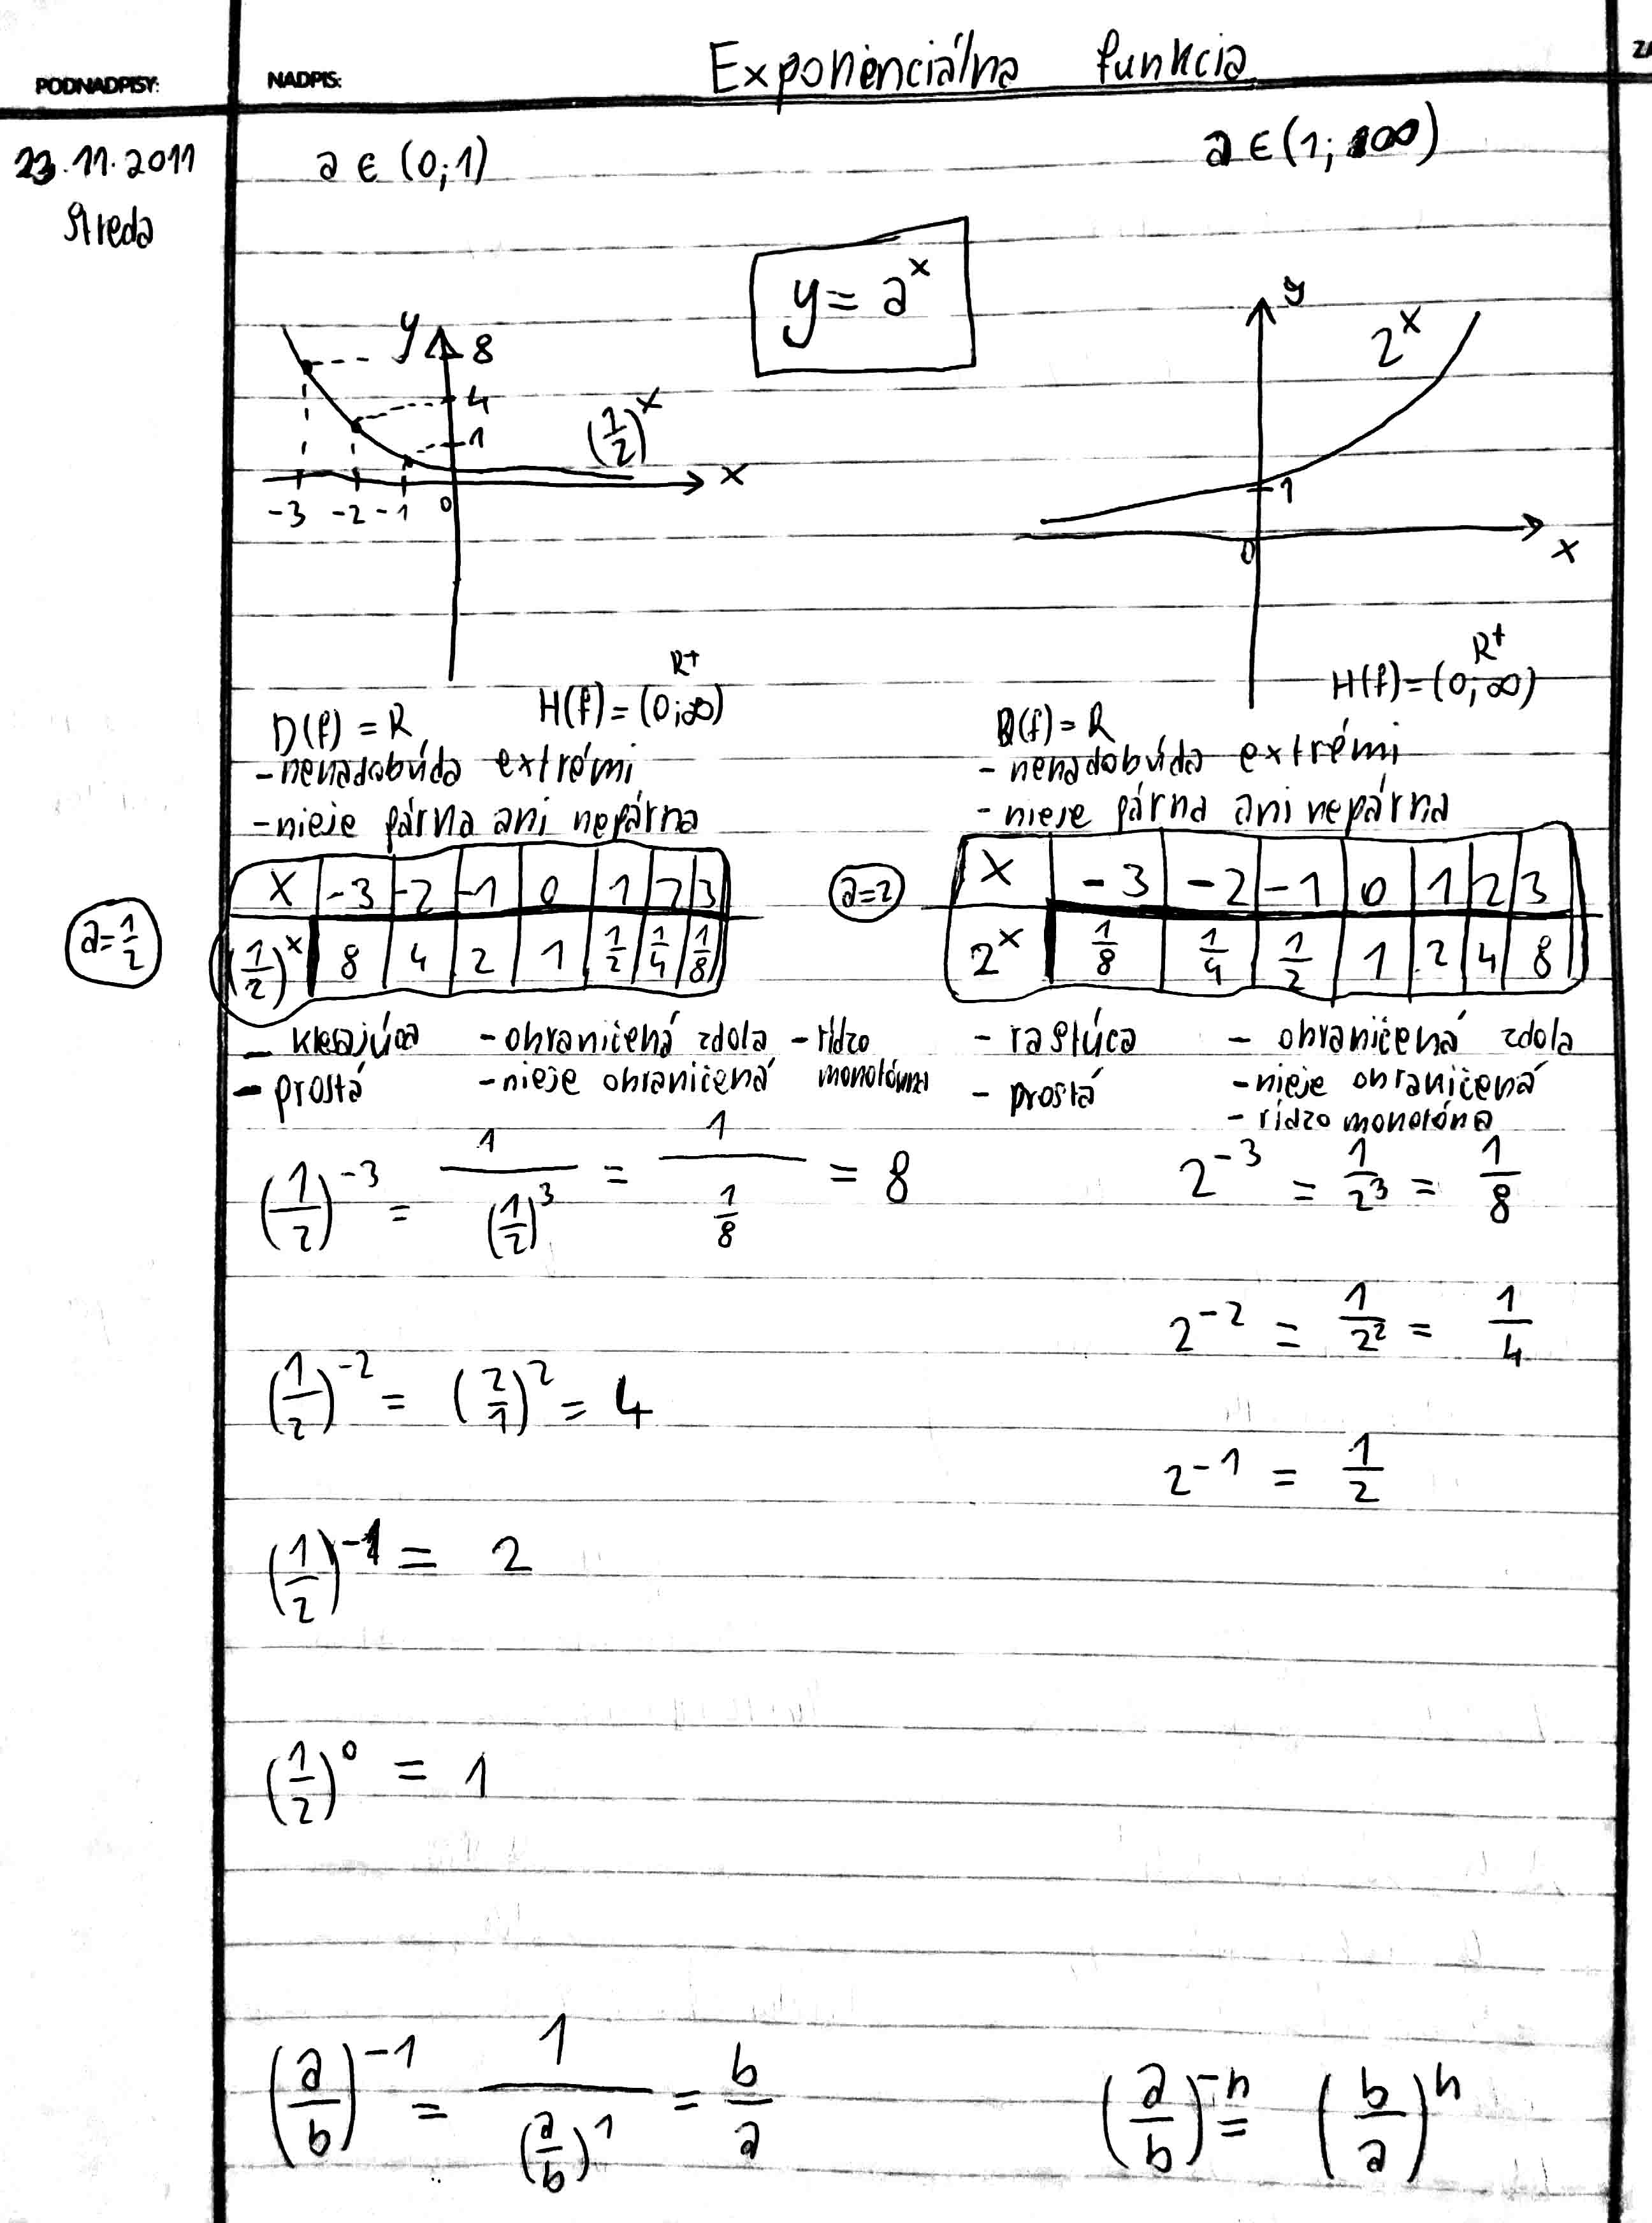 PODNADPISY: NADPIS: Exponenciálna funkcia
23.11.2011
streda
a ∈ (0;1) a ∈ (1; ∞)
y = a^x
y 8
4
1
(1/2)^x
x
-3 -2 -1 0
y
2^x
1
0
x
D(f) = R H(f) = (0;∞) R+
- nenadobúda extrémi
- nieje párna ani nepárna
D(f) = R H(f) = (0;∞) R+
- nenadobúda extrémi
- nieje párna ani nepárna
a=1/2
x -3 -2 -1 0 1 2 3
(1/2)^x 8 4 2 1 1/2 1/4 1/8
a=2
x -3 -2 -1 0 1 2 3
2^x 1/8 1/4 1/2 1 2 4 8
- klesajúca - ohraničená zdola - rídzo
- prostá - nieje ohraničená monotónna
- rastúca - ohraničená zdola
- prostá - nieje ohraničená
- rídzo monotóna
(1/2)^-3 = 1/(1/2)^3 = 1/(1/8) = 8
(1/2)^-2 = (2/1)^2 = 4
(1/2)^-1 = 2
(1/2)^0 = 1
2^-3 = 1/2^3 = 1/8
2^-2 = 1/2^2 = 1/4
2^-1 = 1/2
(a/b)^-1 = 1/(a/b)^1 = b/a
(a/b)^-n = (b/a)^n